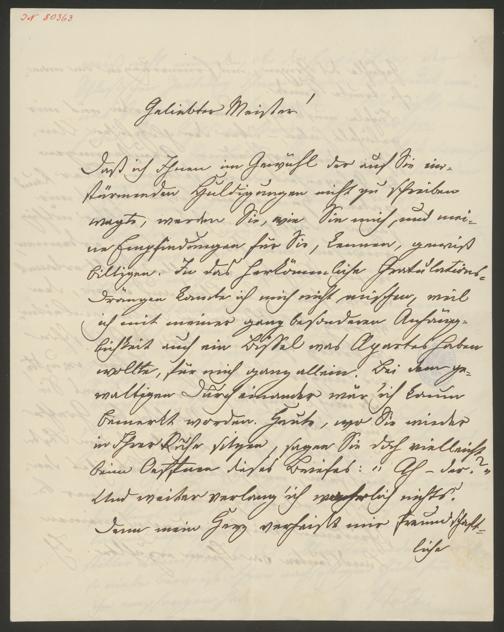 IN 80363
Geliebter Meister!
Daß ich Ihnen im Gewühl der auf Sie ein-
stürmenden Huldigungen nicht zu schreiben
wagte, werden Sie, wie Sie mich, und mei-
ne Empfindungen für Sie, kennen, gewiß
billigen. In das herkömmliche Gratulations-
drängen konnte ich mich nicht mischen, weil
ich mit meiner ganz besonderen Anhäng-
lichkeit auch ein Bissel was Apartes haben
wollte, für mich ganz allein. Bei dem ge-
waltigen Durcheinander wär' ich kaum
bemerkt worden. Heute, wo Sie wieder
in Ihrer Ruhe sitzen, sagen Sie doch vielleicht
beim Oeffnen dieses Briefes: „Ah – der?"
Und weiter verlang' ich wahrlich nichts.
Denn mein Herz verheißt mir freundschaft-
liche